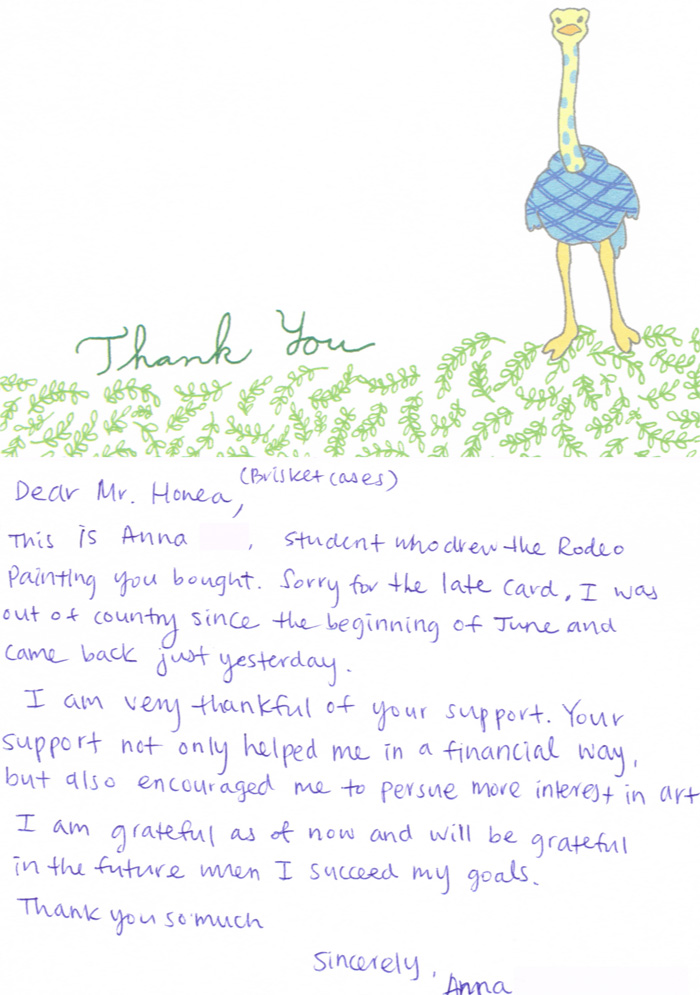 Thank You
(Brisket cases)
Dear Mr. Honea,
This is Anna , student who drew the Rodeo
Painting you bought. Sorry for the late card, I was
out of country since the beginning of June and
came back just yesterday.
I am very thankful of your support. Your
support not only helped me in a financial way,
but also encouraged me to persue more interest in art
I am grateful as of now and will be grateful
in the future when I succeed my goals.
Thank you so much
Sincerely,
Anna